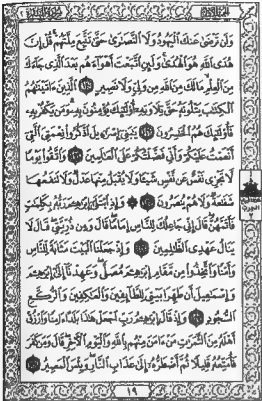 وَلَن تَرْضَىٰ عَنكَ ٱلْيَهُودُ وَلَا ٱلنَّصَـٰرَىٰ حَتَّىٰ تَتَّبِعَ مِلَّتَهُمْ قُلْ إِنَّ
هُدَى ٱللَّهِ هُوَ ٱلْهُدَىٰ وَلَئِنِ ٱتَّبَعْتَ أَهْوَآءَهُم بَعْدَ ٱلَّذِى جَآءَكَ
مِنَ ٱلْعِلْمِ مَا لَكَ مِنَ ٱللَّهِ مِن وَلِىٍّ وَلَا نَصِيرٍ ١٢٠ ٱلَّذِينَ ءَاتَيْنَـٰهُمُ
ٱلْكِتَـٰبَ يَتْلُونَهُۥ حَقَّ تِلَاوَتِهِۦٓ أُو۟لَـٰٓئِكَ يُؤْمِنُونَ بِهِۦ وَمَن يَكْفُرْ بِهِۦ
فَأُو۟لَـٰٓئِكَ هُمُ ٱلْخَـٰسِرُونَ ١٢١ يَـٰبَنِىٓ إِسْرَٰٓءِيلَ ٱذْكُرُوا۟ نِعْمَتِىَ ٱلَّتِىٓ
أَنْعَمْتُ عَلَيْكُمْ وَأَنِّى فَضَّلْتُكُمْ عَلَى ٱلْعَـٰلَمِينَ ١٢٢ وَٱتَّقُوا۟ يَوْمًا
لَّا تَجْزِى نَفْسٌ عَن نَّفْسٍ شَيْـًٔا وَلَا يُقْبَلُ مِنْهَا عَدْلٌ وَلَا تَنفَعُهَا
شَفَـٰعَةٌ وَلَا هُمْ يُنصَرُونَ ١٢٣ ۞ وَإِذِ ٱبْتَلَىٰٓ إِبْرَٰهِـۧمَ رَبُّهُۥ بِكَلِمَـٰتٍ
فَأَتَمَّهُنَّ قَالَ إِنِّى جَاعِلُكَ لِلنَّاسِ إِمَامًا قَالَ وَمِن ذُرِّيَّتِى قَالَ لَا
يَنَالُ عَهْدِى ٱلظَّـٰلِمِينَ ١٢٤ وَإِذْ جَعَلْنَا ٱلْبَيْتَ مَثَابَةً لِّلنَّاسِ
وَأَمْنًا وَٱتَّخِذُوا۟ مِن مَّقَامِ إِبْرَٰهِـۧمَ مُصَلًّى وَعَهِدْنَآ إِلَىٰٓ إِبْرَٰهِـۧمَ
وَإِسْمَـٰعِيلَ أَن طَهِّرَا بَيْتِىَ لِلطَّآئِفِينَ وَٱلْعَـٰكِفِينَ وَٱلرُّكَّعِ
ٱلسُّجُودِ ١٢٥ وَإِذْ قَالَ إِبْرَٰهِـۧمُ رَبِّ ٱجْعَلْ هَـٰذَا بَلَدًا ءَامِنًا وَٱرْزُقْ
أَهْلَهُۥ مِنَ ٱلثَّمَرَٰتِ مَنْ ءَامَنَ مِنْهُم بِٱللَّهِ وَٱلْيَوْمِ ٱلْـَٔاخِرِ قَالَ وَمَن كَفَرَ
فَأُمَتِّعُهُۥ قَلِيلًا ثُمَّ أَضْطَرُّهُۥٓ إِلَىٰ عَذَابِ ٱلنَّارِ وَبِئْسَ ٱلْمَصِيرُ ١٢٦
١٩